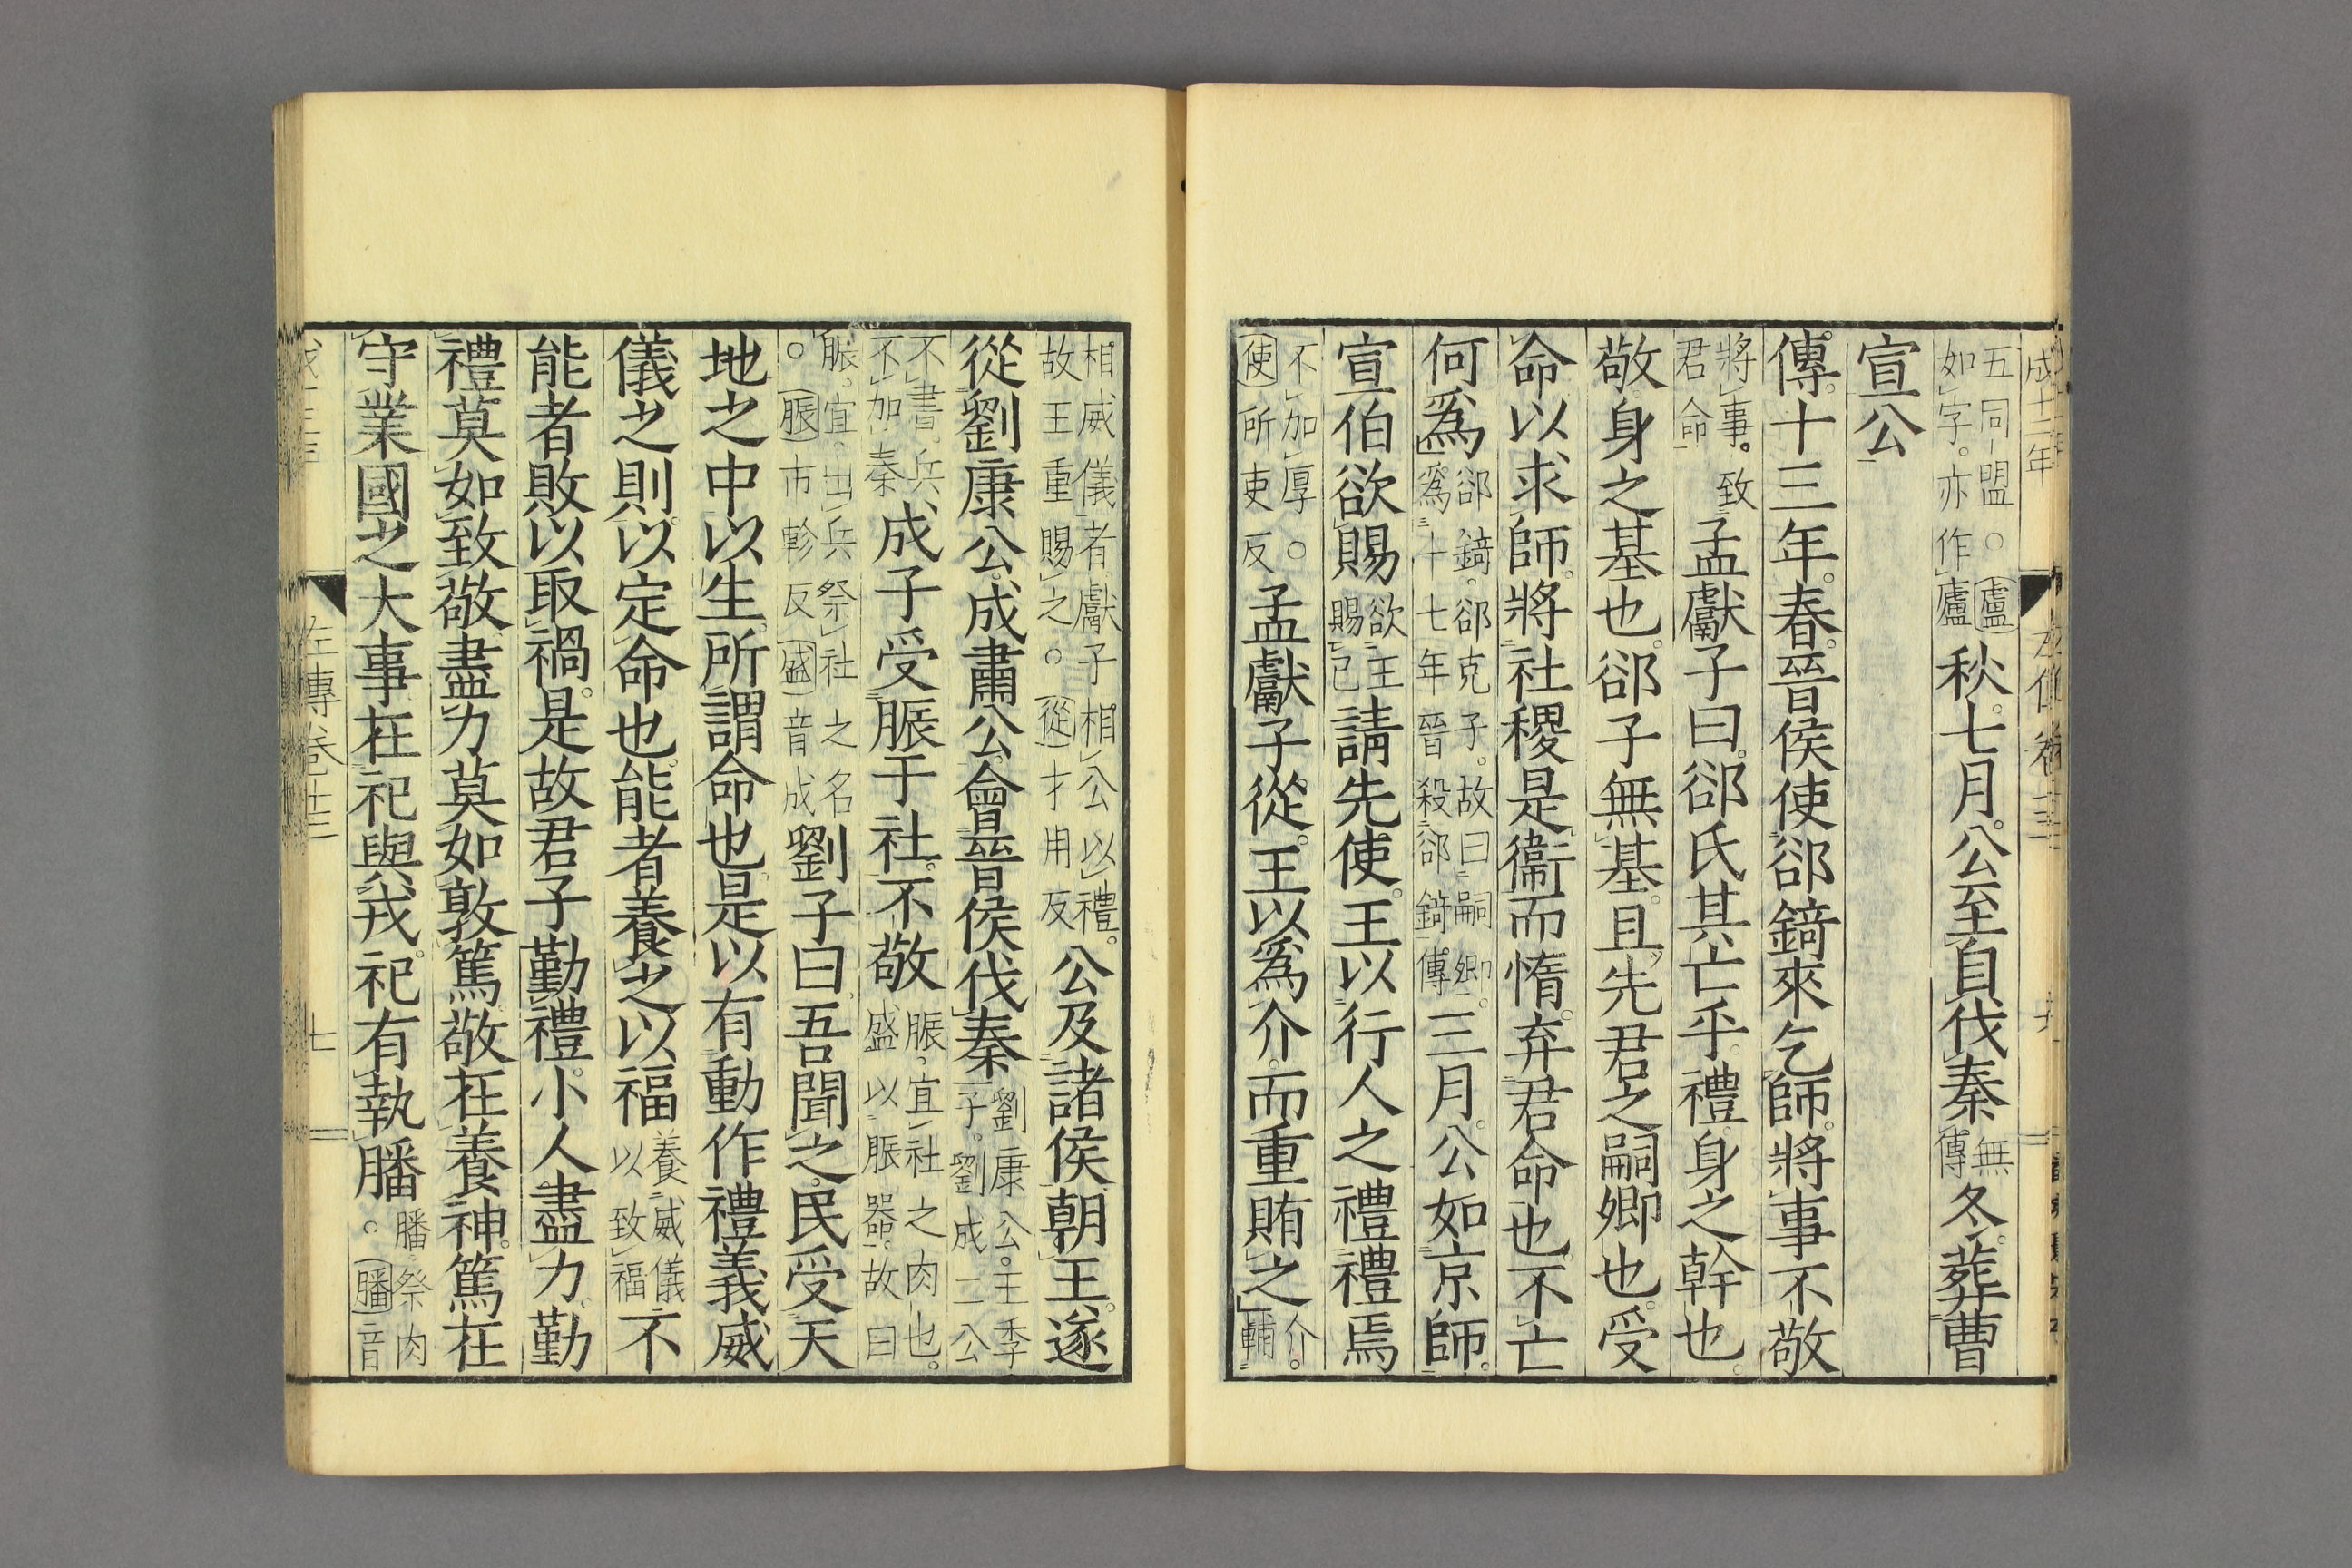 五同盟。○盧
如字。亦作廬秋。七月。公至自伐秦無
傳冬。葬曹
宣公
傳。十三年。春。晉侯使郤錡來乞師。將事不敬
將事。致
君命孟獻子曰。郤氏其亡乎。禮。身之幹也。
敬。身之基也。郤子無基。且先君之嗣卿也。受
命以求師。將社稷是衞。而惰。弃君命也。不亡
何爲郤錡。郤克子。故曰嗣卿。
爲十七年晉殺郤錡。傳三月。公如京師。
宣伯欲賜欲王
賜己請先使。王以行人之禮禮焉
不加厚○。
使所吏反孟獻子從。王以爲介。而重賄之介。
輔
相威儀者獻子相公以禮。
故王重賜之。○從才用反公及諸侯朝王。遂
從劉康公。成肅公。會晉侯伐秦劉康公。王季
子。劉成二公
不書。兵
不加秦成子受脤于社。不敬脤。宜社之肉也。
盛以脤器。故曰
脤。宜。出兵祭社之名
。○脤市軫反盛音成劉子曰。吾聞之。民受天
地之中以生。所謂命也。是以有動作禮義威
儀之則。以定命也。能者養之以福養威儀
以致福不
能者敗以取禍。是故君子勤禮。小人盡力。勤
禮莫如致敬。盡力莫如敦篤。敬在養神。篤在
守業。國之大事。在祀與戎。祀有執膰膰。祭肉
。○膰音
左傳卷十三
七